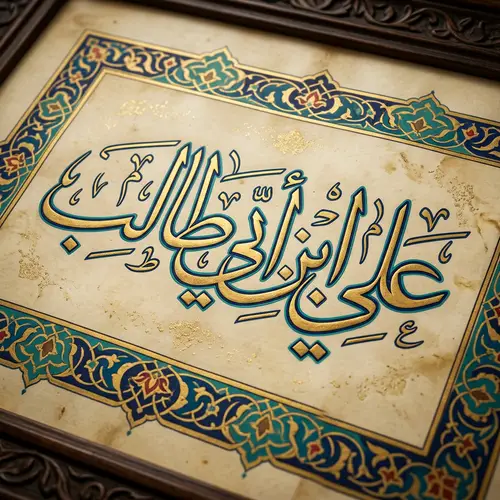 علي ابن أبي طالب